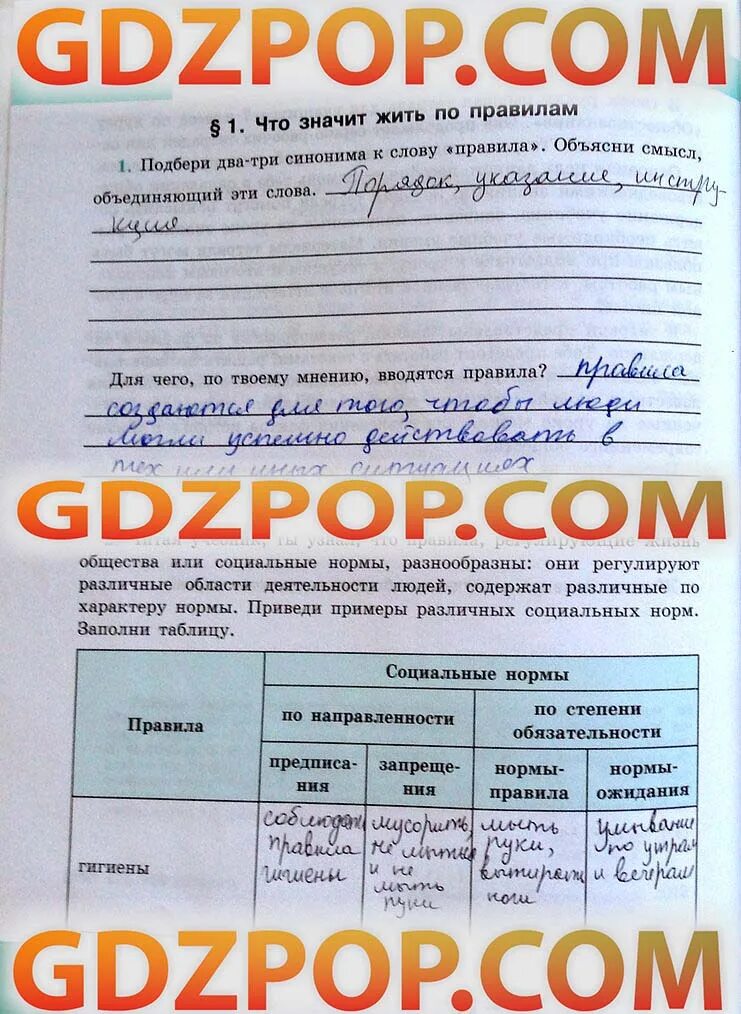 GDZPOP.COM
§ 1. Что значит жить по правилам
1. Подбери два-три синонима к слову «правила». Объясни смысл,
объединяющий эти слова. Порядок, указание, инстру-
кция.
Для чего, по твоему мнению, вводятся правила? правила
создаются для того, чтобы люди
могли успешно действовать в
тех или иных ситуациях
GDZPOP.COM
Читая учебник, ты узнал, что правила, регулирующие жизнь
общества или социальные нормы, разнообразны: они регулируют
различные области деятельности людей, содержат различные по
характеру нормы. Приведи примеры различных социальных норм.
Заполни таблицу.
Правила
Социальные нормы
по направленности
по степени
обязательности
предписа-
ния
запреще-
ния
нормы-
правила
нормы-
ожидания
гигиены
соблюдать
правила
гигиены
мусорить,
не мыться
и не
мыть
руки
мыть
руки,
вытирать
ноги
умывание
по утрам
и вечерам
GDZPOP.COM